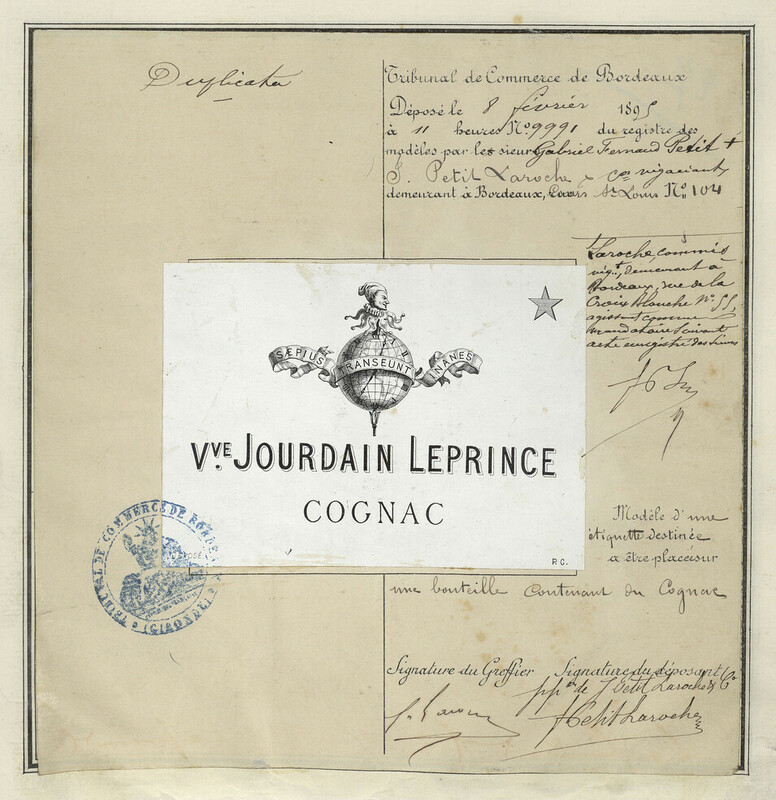 Duplicata
Tribunal de Commerce de Bordeaux
Déposé le 8 février 1895
à 11 heures No. 9991 du registre des
modèles par les sieur Gabriel Fernand Petit +
J. Petit Laroche & Cie
demeurant à Bordeaux, Cours St Louis No 104
Laroche, commis
demeurant à
Bordeaux, rue de la
Croix Blanche No 55,
agissant comme
mandataire suivant
acte enregistré
SÆPIUS TRANSEUNT INANES
VVE JOURDAIN LEPRINCE
COGNAC
DÉPOSÉ
R.C.
TRIBUNAL DE COMMERCE DE BORDEAUX
(GIRONDE)
Modèle d'une
étiquette destinée
à être placée sur
une bouteille contenant du Cognac
Signature du Greffier Signature du déposant
de J Petit Laroche & Cie
Petit Laroche